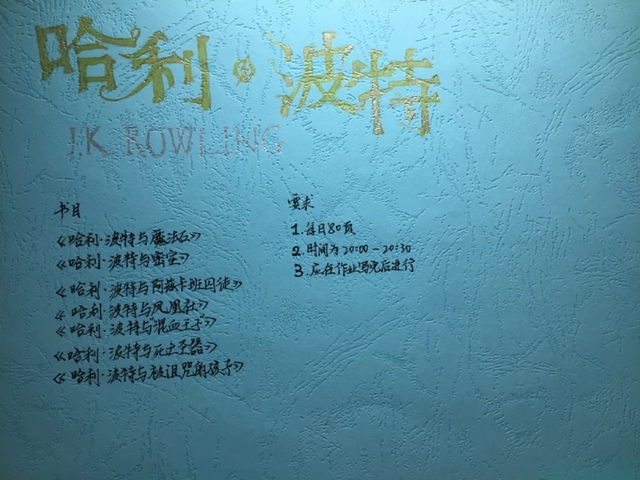 哈利·波特
J.K. ROWLING
书目
《哈利·波特与魔法石》
《哈利·波特与密室》
《哈利·波特与阿兹卡班囚徒》
《哈利·波特与凤凰社》
《哈利·波特与"混血王子"》
《哈利·波特与死亡圣器》
《哈利·波特与被诅咒的孩子》
要求
1. 每日80页
2. 时间为20:00-20:30
3. 应在作业写完后进行